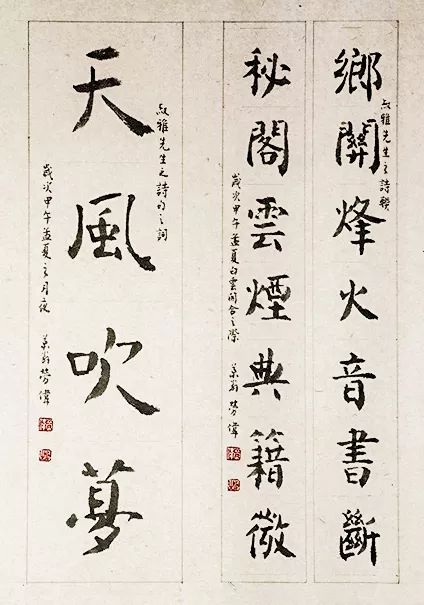 鄉關烽火音書斷
叔雅先生之詩
秘閣雲煙典籍微
歲次甲午孟夏白雲開合之際 翁 勞偉
叔雅先生之詩句之詞
天風吹夢
歲次甲午孟夏之月夜 翁 勞偉